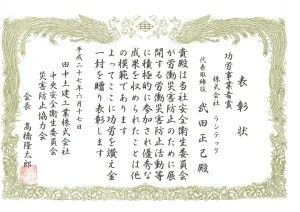 表彰状
功労事業者賞
株式会社 ランテック
代表取締役 武田正己殿
貴殿は当社安全衛生委員会
が労働災害防止のために展
開する労働災害防止活動等
に積極的に参加され優秀な
成果を収められたことは他
の模範であります
よってここに功労を讃え金
一封を贈り表彰します
平成二十七年六月十七日
田中土建工業株式会社
中央安全衛生委員会
災害防止協力会
会長 髙橋隆太郎